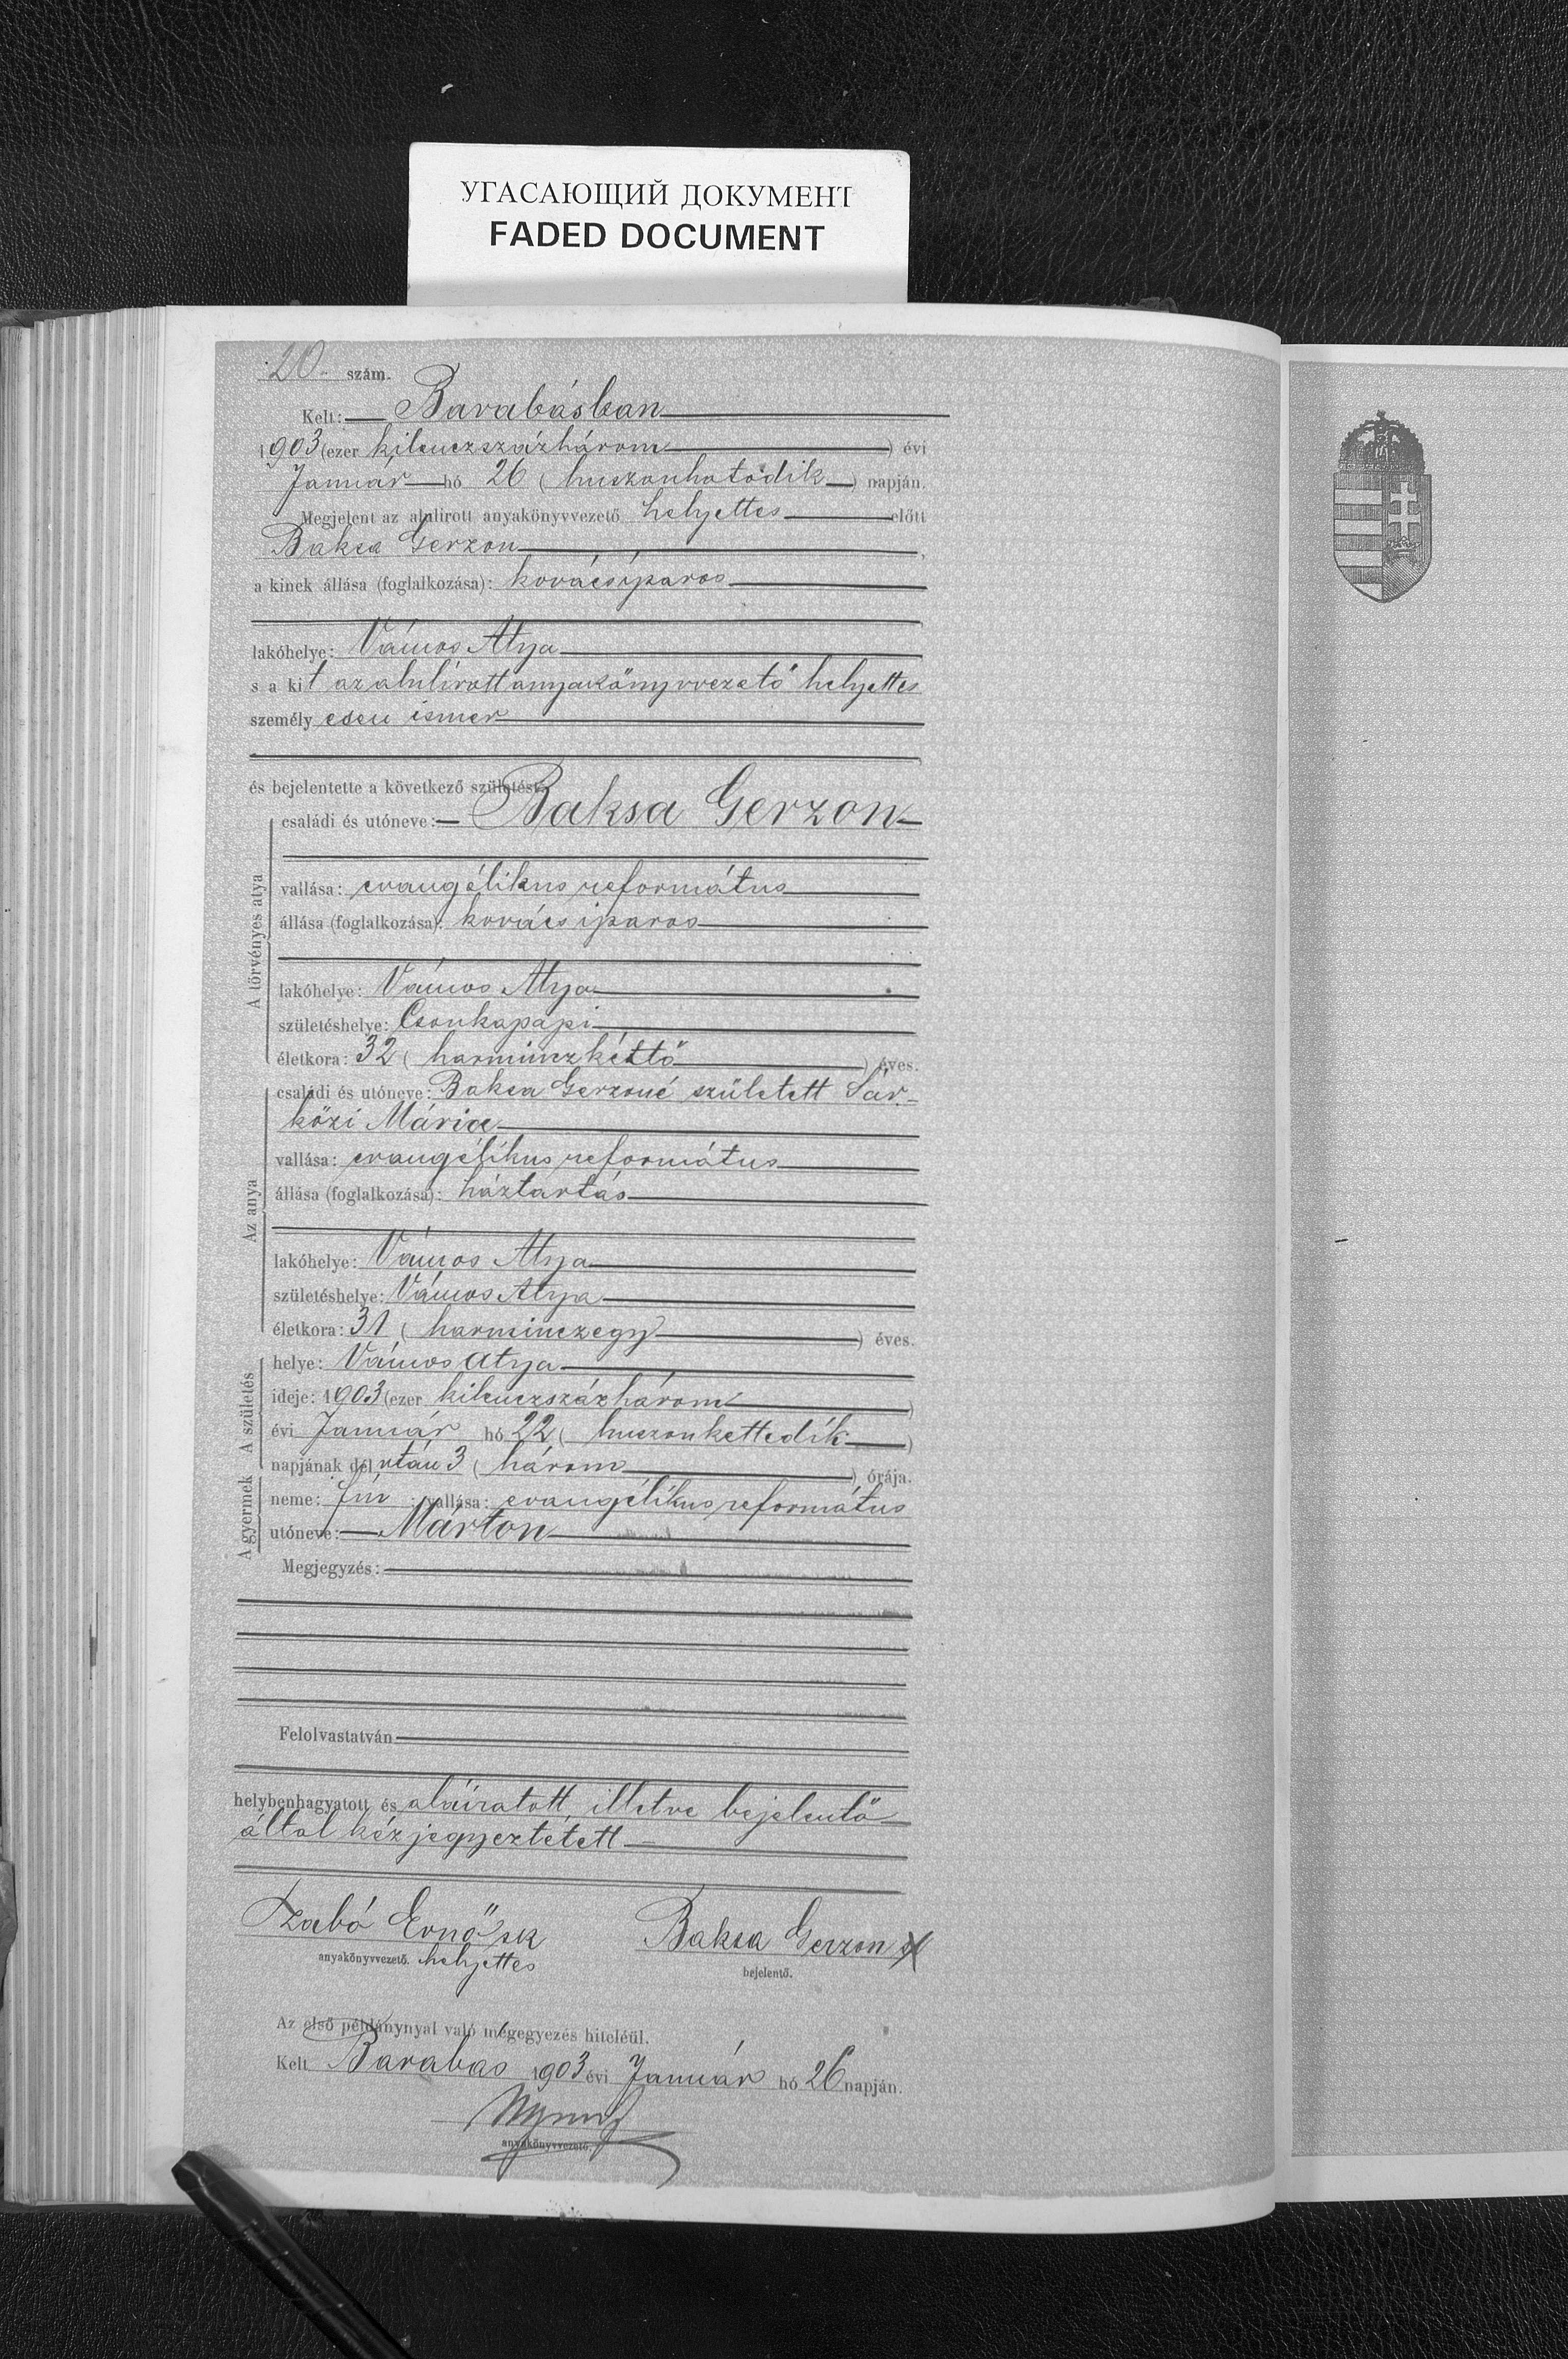 УГАСАЮЩИЙ ДОКУМЕНТ
FADED DOCUMENT
20. szám.
Kelt: Barabásban
1903 (ezer kilenczszázhárom) évi
Január hó 26 (huszonhatodik) napján.
Megjelent az alulirott anyakönyvvezető helyettes előtt
Baksa Gerzon,
a kinek állása (foglalkozása): kovácsiparos
lakóhelye: Vámos Atya
s a kit az alulírott anyakönyvvezető helyettes
személyesen ismer
és bejelentette a következő születést:
A törvényes atya
családi és utóneve: Baksa Gerzon
vallása: evangélikus református
állása (foglalkozása): kovács iparos
lakóhelye: Vámos Atya
születéshelye: Csonkapapi
életkora: 32 (harminczkettő) éves.
Az anya
családi és utóneve: Baksa Gerzoné született Sár-
közi Mária
vallása: evangélikus református
állása (foglalkozása): háztartás
lakóhelye: Vámos Atya
születéshelye: Vámos Atya
életkora: 31 (harminczegy) éves.
A születés
helye: Vámos Atya
ideje: 1903 (ezer kilenczszázhárom)
évi Január hó 22 (huszonkettedik)
napjának dél után 3 (három) órája.
A gyermek
neme: fiú; vallása: evangélikus református
utóneve: Márton
Megjegyzés:
Felolvastatván
helybenhagyatott és aláiratott, illetve bejelentő
által kézjegyeztetett
Szabó Ernő sk Baksa Gerzon x
anyakönyvvezető. helyettes bejelentő.
Az első példánynyal való megegyezés hiteléül.
Kelt Barabas 1903 évi Január hó 26 napján.
anyakönyvvezető.